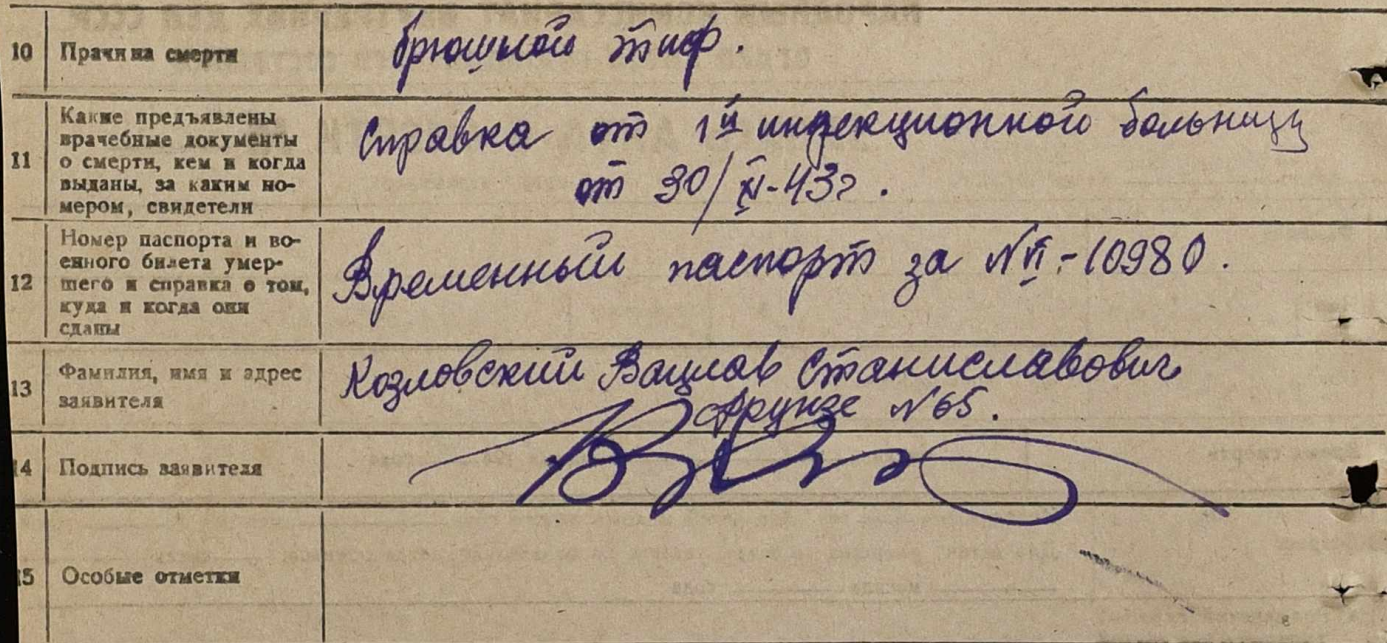 10 Причина смерти брюшной тиф.
11 Какие предъявлены
врачебные документы
о смерти, кем и когда
выданы, за каким но-
мером, свидетели
Справка от 1й инфекционной больницы
от 30/XI-43г.
12 Номер паспорта и во-
енного билета умер-
шего и справка о том,
куда и когда они
сданы
Временный паспорт за № VI-10980.
13 Фамилия, имя и адрес
заявителя
Козловский Вацлав Станиславович
Фрунзе №65.
14 Подпись заявителя
15 Особые отметки